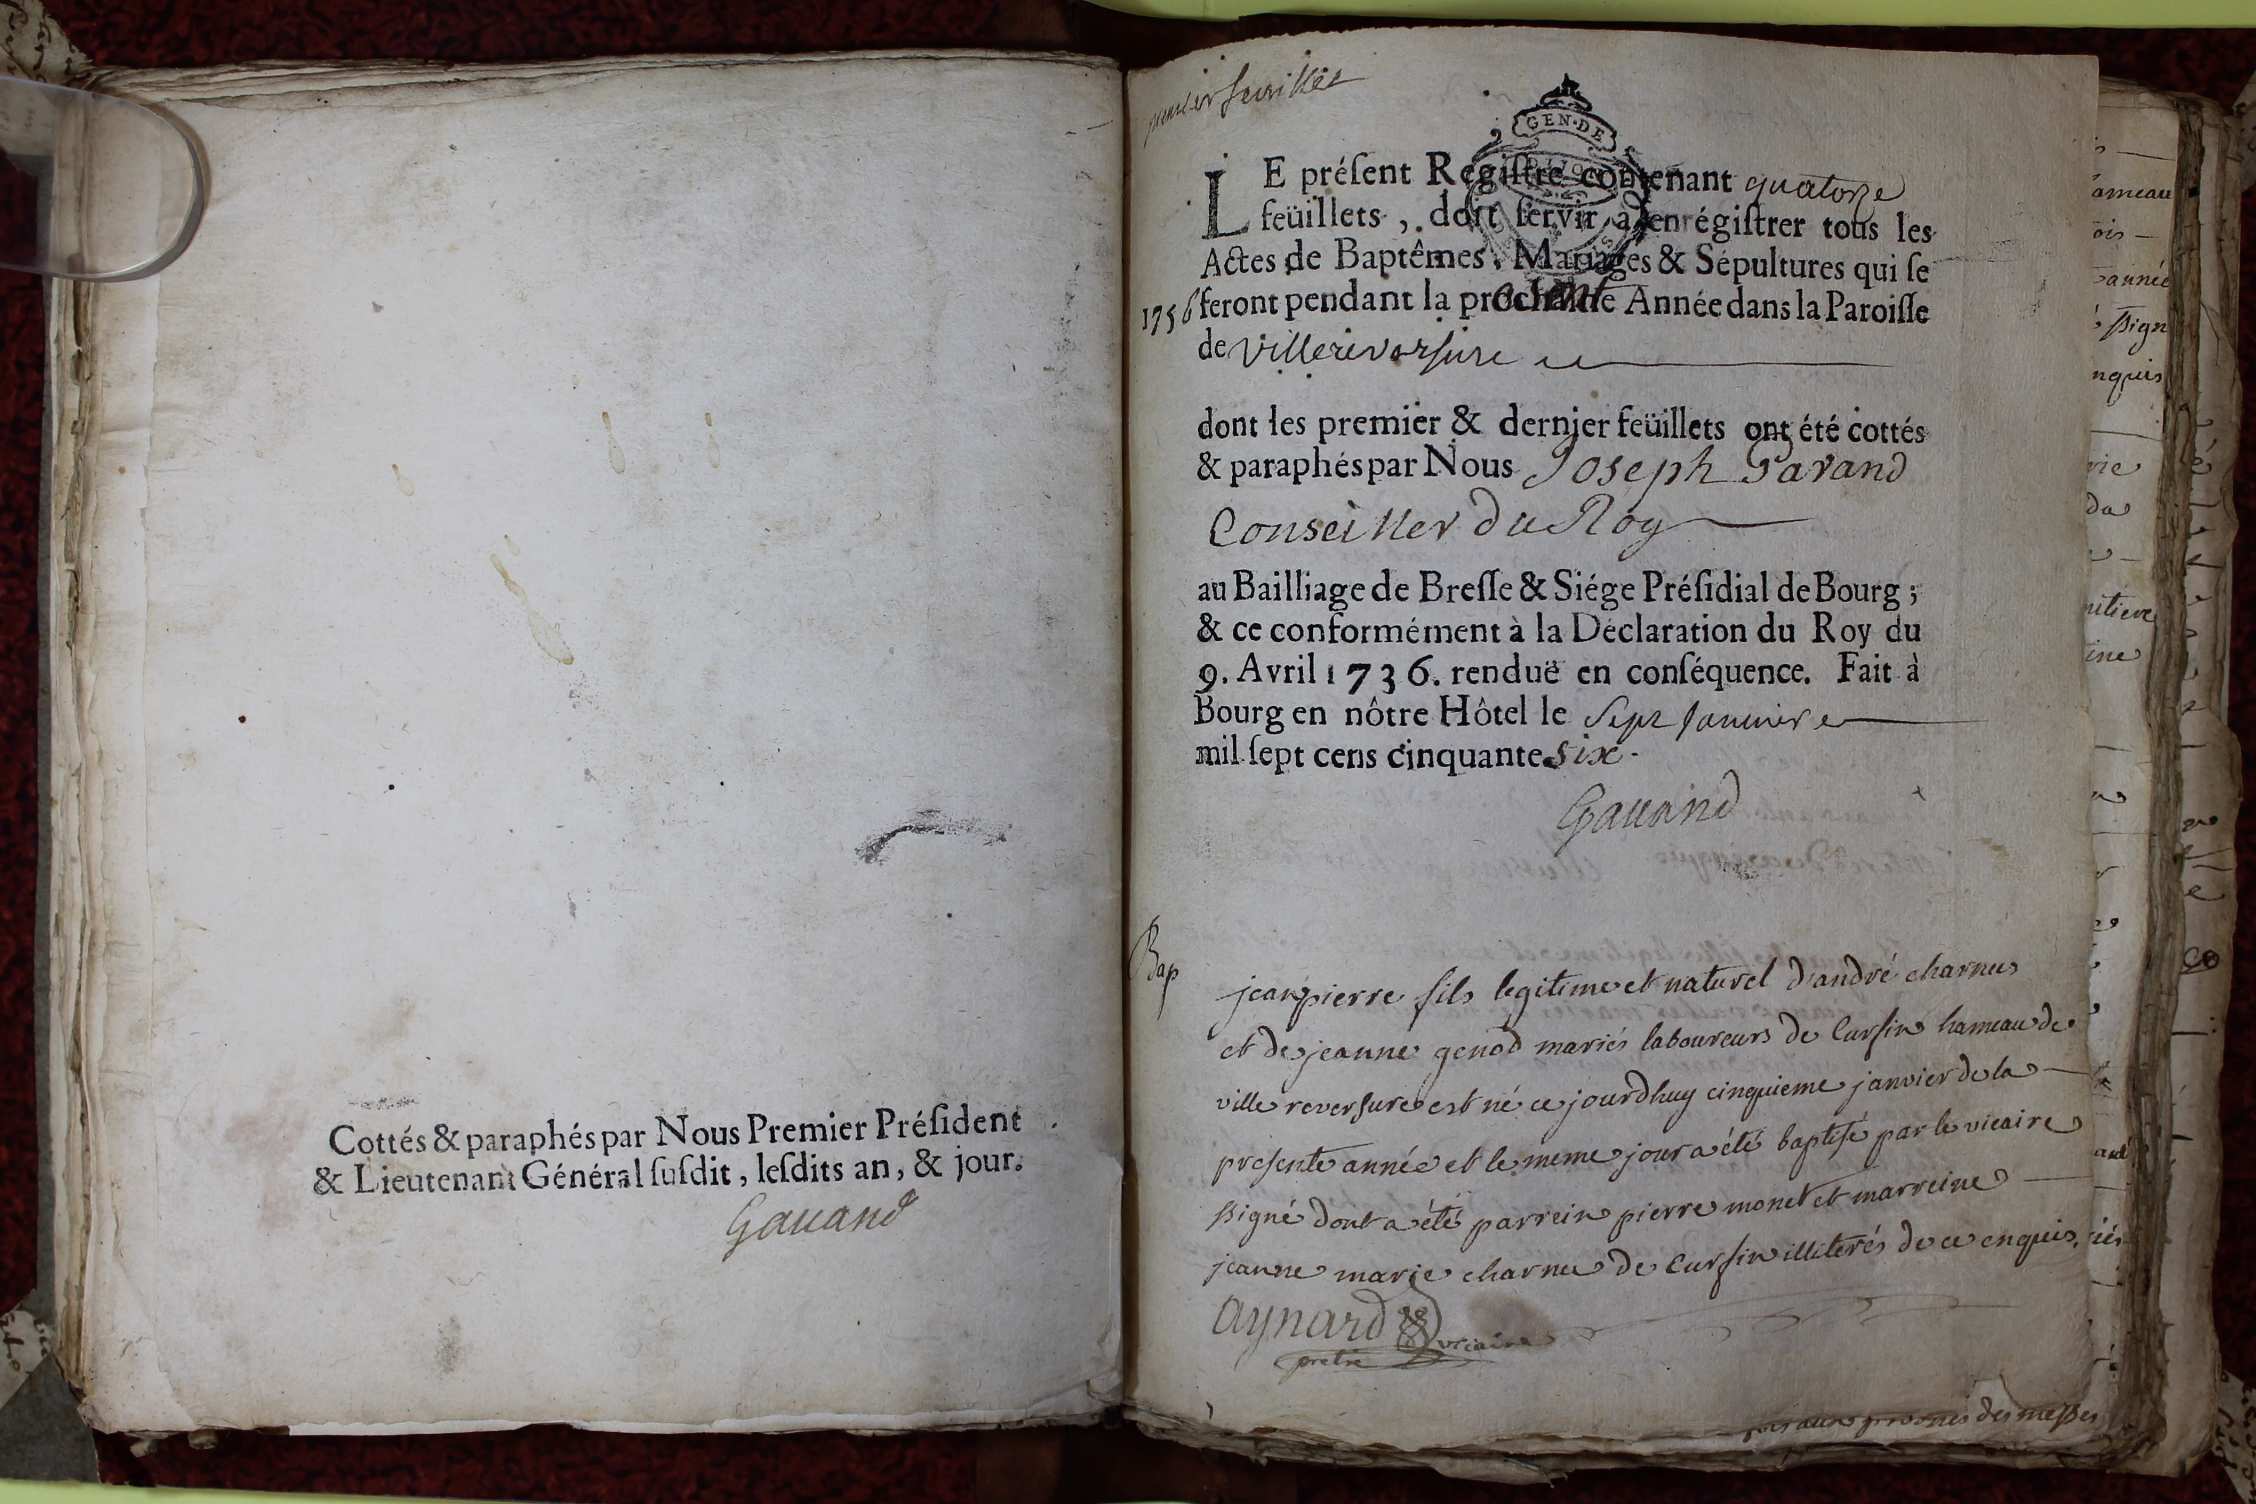 Cottés & paraphés par Nous Premier Préſident
& Lieutenant Général ſuſdit, leſdits an, & jour.
Gauand
premier feuillet
GEN·DE
LE préſent Regiſtre contenant quatorze
feüillets, doit ſervir à enrégiſtrer tous les
Actes de Baptêmes, Mariages & Sépultures qui ſe
1756 feront pendant la prochaine Année dans la Paroiſſe
de Villereversure
dont les premier & dernier feüillets ont été cottés
& paraphés par Nous Joseph Gavand
Conseiller du Roy
au Bailliage de Breſſe & Siége Préſidial de Bourg ;
& ce conformément à la Déclaration du Roy du
9. Avril 1736. renduë en conſéquence. Fait à
Bourg en nôtre Hôtel le Sept Janvier
mil ſept cens cinquante six.
Gauand
Bap
jean pierre fils legitime et naturel d'andré charnus
et de jeanne genod mariés laboureurs de Cursin hameau de
ville reversure est né ce jourdhuy cinquieme janvier de la
presente année et le meme jour a été baptisé par le vicaire
ssigné dont a été parrein pierre monet et marreine
jeanne marie charnu de Cursin illiterés de ce enquis.
aynard
pretre vicaire
prones des messes
hameau
ois
année
ssign
nquis